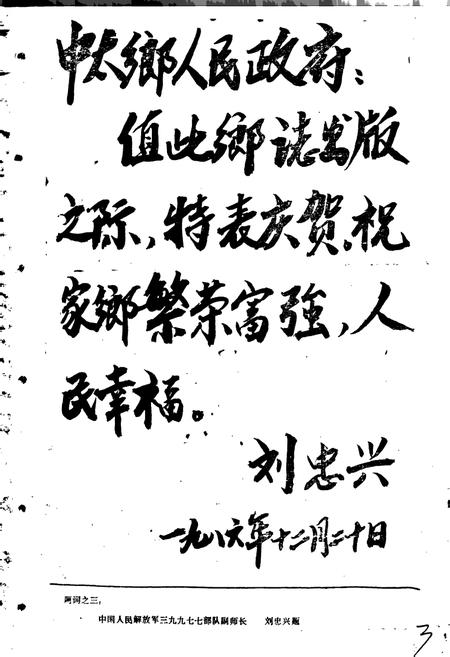 中太鄉人民政府：
值此鄉誌发版
之际，特表庆贺，祝
家鄉繁荣富強，人
民幸福。
刘忠兴
一九八六年十二月二十日
题词之三：
中国人民解放军三九九七七部队副师长 刘忠兴题
3